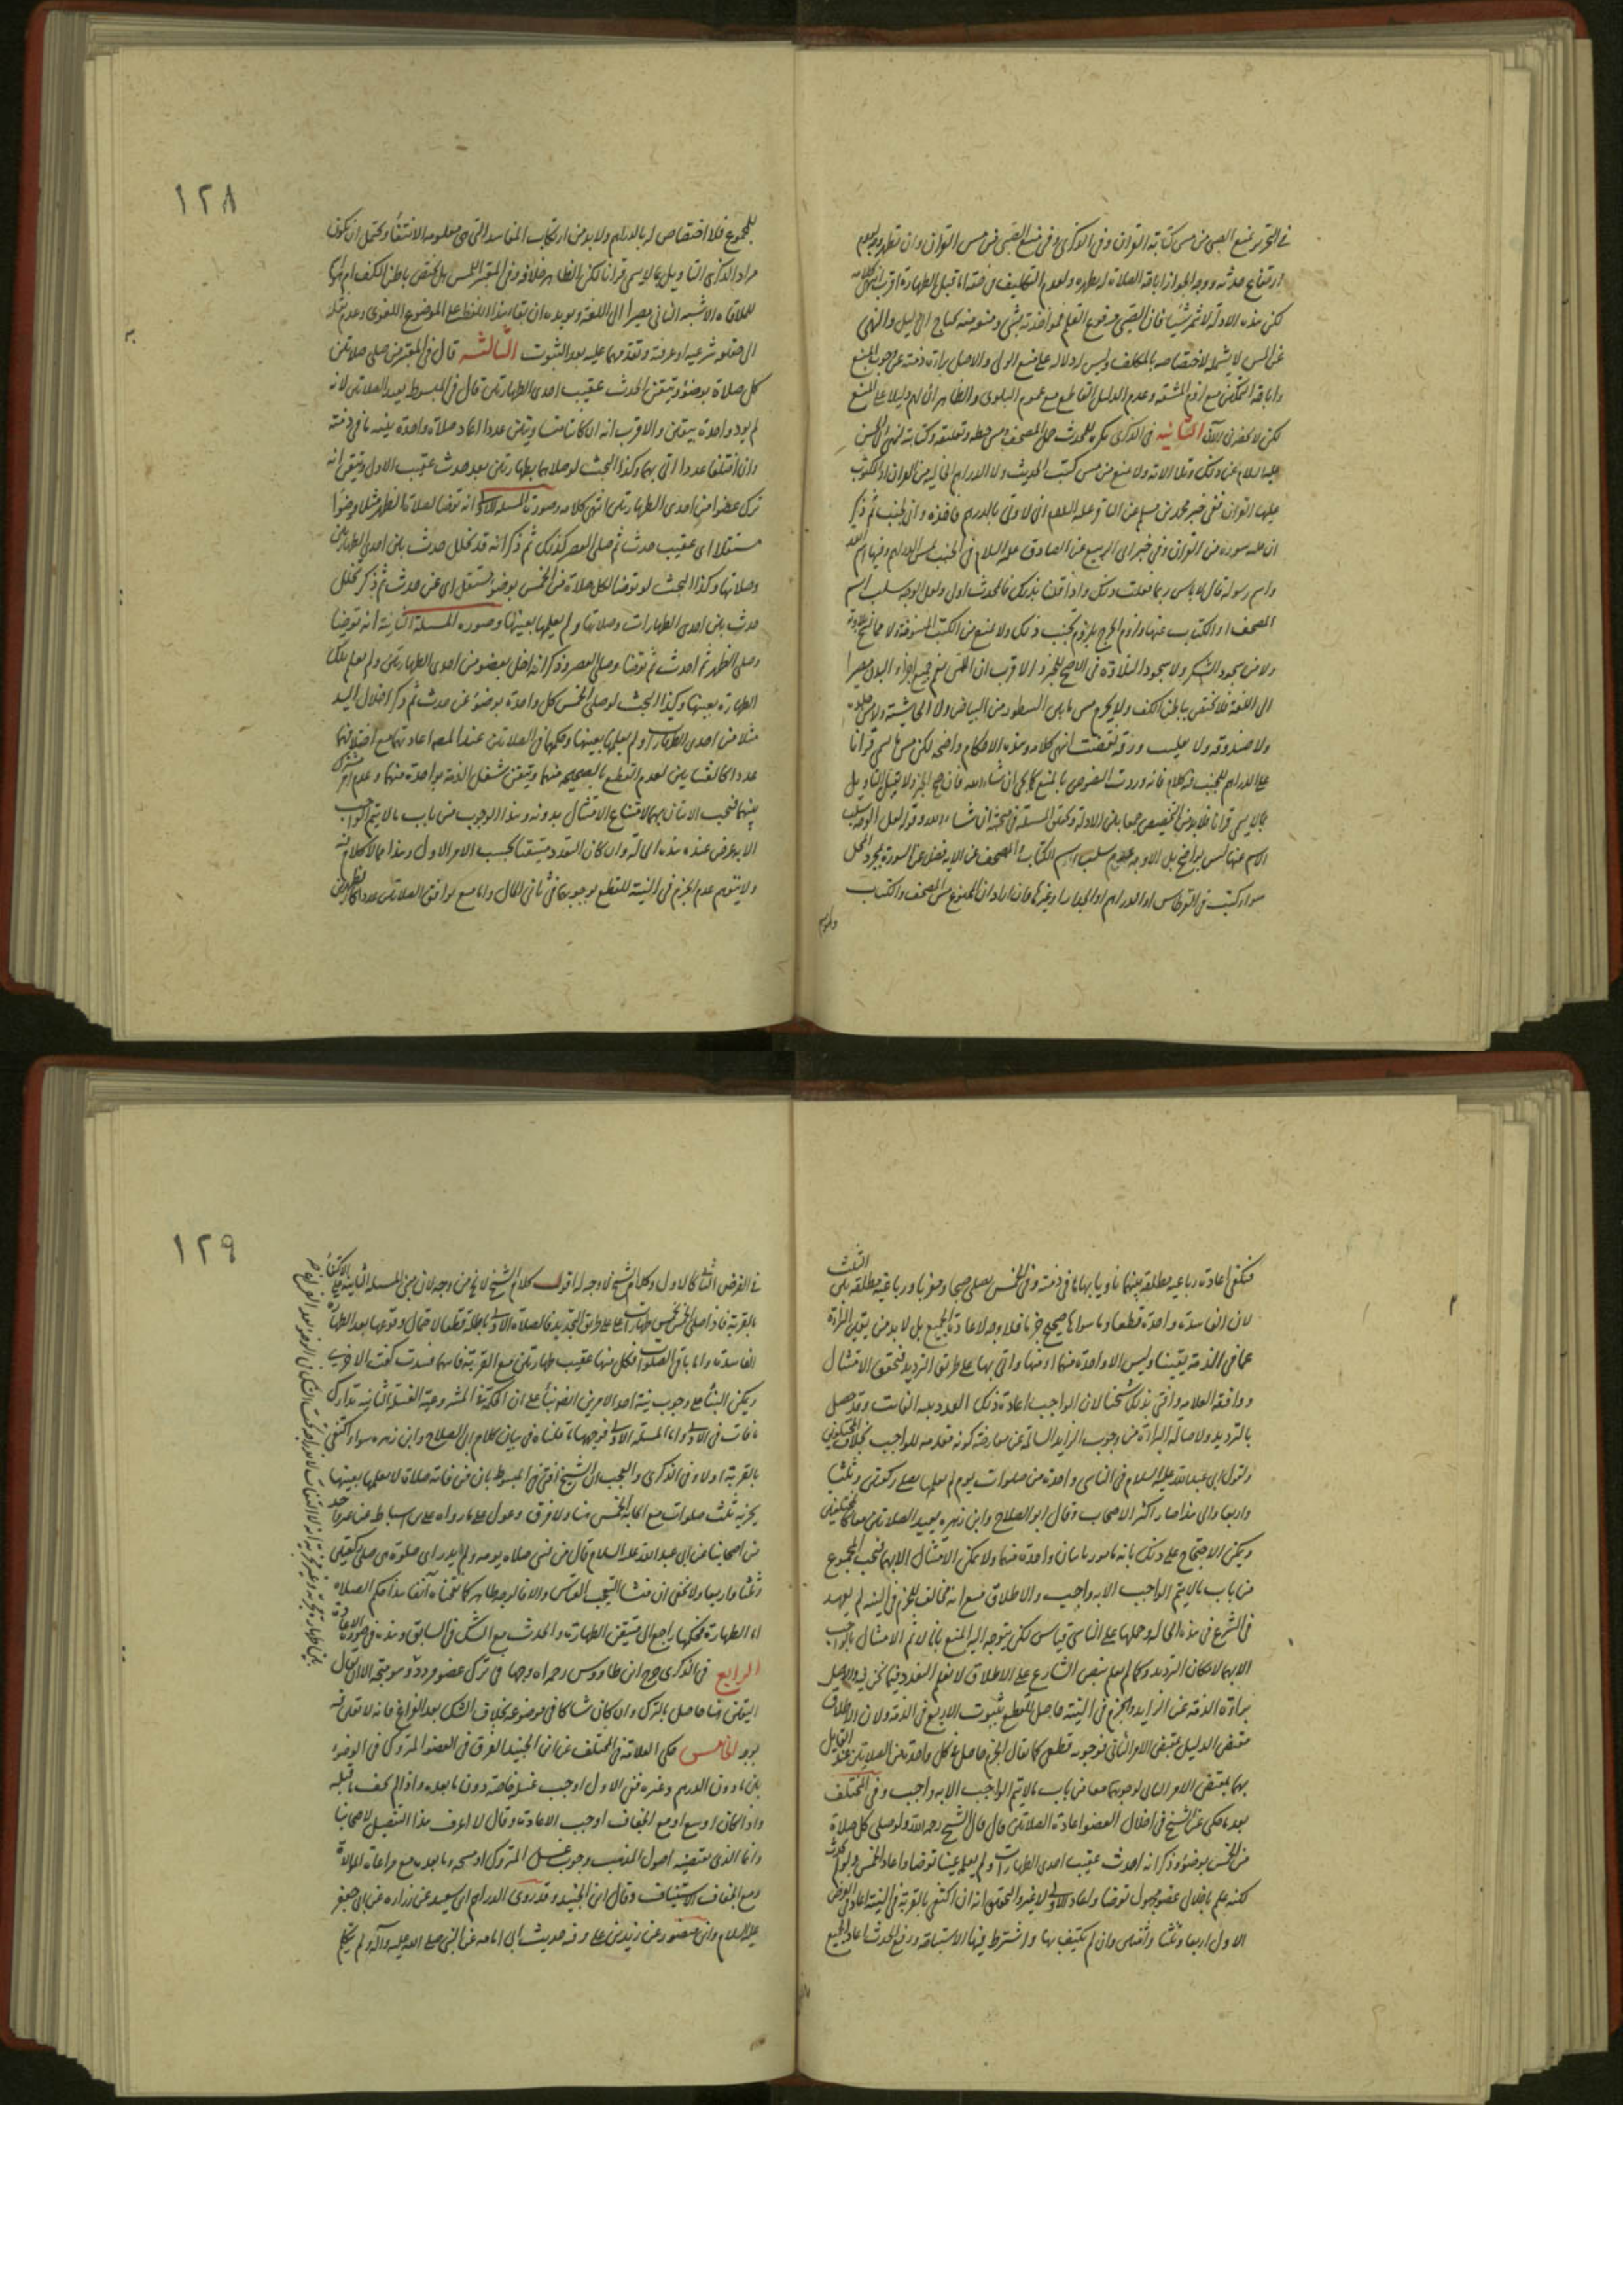 في التحرير منع الصبي من مس كتابة القران وفي الذكرى وفي منع الصبي من مس القران وان تطهر وجه لعدم
ارتفاع حدثه ووجه الجواز اباحة الصلاة له بطهره ولعدم التكليف في حقه اما قبل الطهارة اقرب انتهى كلامه
لكن هذه الادلة لا تثمر شيئا فان الصبي مرفوع القلم فمؤاخذته بشي ومنعه منه يحتاج الى دليل والنهي
عن المس لا يشمله لاختصاصه بالمكلف وليس له دلالة على منع الولي والاصل براءة ذمته عن وجوب المنع
واباحة التمكين مع لزوم المشقة وعدم الدليل القاطع مع عموم البلوى والظاهر
لكن لا يحضرني الآن الثانية في الذكرى يكره للمحدث حمل المصحف ومس خطه وتعليقه وكتابته لنهي ابي الحسن
عليه السلام عن ذلك وتلا الاية ولا منع من مس كتب الحديث ولا الدراهم الخالية من القران او المكتوب
عليها القران ففي خبر محمد بن مسلم عن الباقر عليه السلام اني لاوتى بالدرهم فاخذه واني لجنب ثم ذكر
ان عليه سورة من القران وفي خبر ابي الربيع عن الصادق عليه السلام في الجنب يمس الدراهم وفيها اسم الله
واسم رسوله قال لا باس ربما فعلت ذلك واذا قلنا بذلك فالمحدث اولى ولعل الوجه سلب اسم
المصحف او الكتاب عنها ولزوم الحرج بلزوم تجنب ذلك ولا منع من الكتب المنسوخة ولا مما نسخ تلاوته
ولا من سجود الشكر ولا سجود التلاوة في الاصح للخبر والاقرب ان المس يعم جميع اجزاء البدن مصيرا
الى اللغة فلا يختص بباطن الكف ولا يحرم مس ما بين السطور من البياض ولا الحاشية ولا مس جلده
ولا صندوقه ولا يقلب ورقه بقضيب انتهى كلامه وهذه الاحكام واضحة لكن مس ما يسمى قرانا
على الدراهم للجنب فيه كلام فانه وردت النصوص بالمنع كما يجي ان شاء الله فان صح الخبر ولا يقبل التاويل
بما لا يسمى قرانا فلا بد من التخصيص جمعا بين الادلة وتحقيق المسئلة في محله ان شاء الله وقوله لعل الوجه سلب
الاسم عنها ليس بواضح بل الاوجه عدم سلب اسم الكتاب والمصحف عن الاية فضلا عن السورة بمجرد المحل
سواء كتبت في القرطاس او الدراهم او الجدار او غيرها وان اراد ان الممنوع مس المصحف والكتاب
١٢٨
للمجموع فلا اختصاص له بالدراهم ولا بد من ارتكاب المفاسد التي هي معلومة الانتفاء ويحتمل ان يكون
مراد الذكرى التاويل بما لا يسمى قرانا لكن الظاهر خلافه وفي المعتبر اللمس هل يختص بباطن الكف ام
للملاقاة الاشبه الثاني مصيرا الى اللغة ويؤيده ان بقاء هذا اللفظ على الموضوع اللغوي وعدم نقله
الى حقيقة شرعية او عرفية وتقدمهما عليه بعد الثبوت الثالثة قال في المعتبر من صلى صلاتين
كل صلاة بوضوء وتيقن الحدث عقيب احدى الطهارتين قال في المبسوط يعيد الصلاتين لانه
لم يود واحدة بيقين والاقرب انه ان كانتا متساويتين عددا اعاد صلاة واحدة بنية ما في ذمته
وان اختلفتا عددا اتى بهما وكذا البحث لو صلاهما بطهارتين بعد حدث عقيب الاول وتيقن انه
ترك عضوا من احدى الطهارتين انتهى كلامه وصورة المسئلة الاولى انه توضا لصلاة الظهر مثلا وضوا
مستقلا اي عقيب حدث ثم صلى العصر كذلك ثم ذكر انه قد تخلل حدث بين احدى الطهارتين
وصلاتها وكذا البحث لو توضا لكل صلاة من الخمس بوضوء مستقل اي عن حدث ثم ذكر تخلل
حدث بين احدى الطهارات وصلاتها ولم يعلمها بعينها وصورة المسئلة الثانية انه توضا
وصلى الظهر ثم احدث ثم توضا وصلى العصر وذكر انه اخل بعضو من احدى الطهارتين ولم يعلم تلك
الطهارة بعينها وكذا البحث لو صلى الخمس كل واحدة بوضوء عن حدث ثم ذكر اخلال اليد
مثلا من احدى الطهارات ولم يعلمها بعينها وحكمها في الصلاتين عند المصنف اعادتهما مع اختلافهما
عددا كالعشاءين لعدم القطع بالصحيحة منهما وتيقن شغل الذمة بواحدة منهما وعدم امر مشترك
بينهما فيجب الاتيان بهما لامتناع الامتثال بدونه وهذا الوجوب من باب ما لا يتم الواجب
الا به عرض عنده هذه الحالة وان كان التعدد متيقنا بحسب الامر الاول وهذا مما لا كلام فيه
ولا يتوهم عدم الجزم في النية للقطع بوجوبهما في ثاني الحال واما مع توافق الصلاتين عددا كالظهرين
فيكفي اعادة رباعية مطلقة بينهما ناويا بها ما في ذمته وفي الخمس يصلي صبحا ومغربا ورباعية مطلقة بين الثلث
لان الفاسدة واحدة قطعا وما سواها صحيح جزما فلا وجه لاعادة الجميع بل لا بد من تيقن البراءة
عما في الذمة يقينا وليس الا واحدة منهما او منها واتى بها على طريق الترديد فتحقق الامتثال
ووافقه العلامة وافتى بذلك شيخنا لان الواجب اعادة ذلك العدد بنية الفائت وقد حصل
بالترديد ولاصالة البراءة من وجوب الزايد السالمة عن معارضة كونه مقدمة للواجب بخلاف المختلفين
ولقول ابي عبد الله عليه السلام في الناسي واحدة من صلوات يوم لم يعلمها يصلي ركعتين وثلثا
واربعا والى هذا صار اكثر الاصحاب وقال ابو الصلاح وابن زهرة يعيد الصلاتين معا كالمختلفين
ويمكن الاحتجاج على ذلك بانه مامور باتيان واحدة منهما ولا يمكن الامتثال الا بهما فيجب المجموع
من باب ما لا يتم الواجب الا به واجب والاطلاق مع انه مخالف للجزم في النية لم يعهد
في الشرع في هذه الحالة وحملها على الناسي قياس لكن يتوجه اليه المنع بانا لا نم الامتثال بالواجب
الا بهما لامكان الترديد وكما لم يعلم بنص الشارع على الاطلاق لا نعلم التعدد فيما نحن فيه والاصل
براءة الذمة عن الزايد والجزم في النية حاصل للقطع بثبوت الاربع في الذمة ولان الاطلاق
مقتضى الدليل بمقتضى الامر الثاني فوجوبه قطعي كما يقال الجزم حاصل في كل واحدة من الصلاتين عند القايل
بهما بمقتضى الامر الثاني لوجوبهما معا من باب ما لا يتم الواجب الا به واجب وفي المختلف
بعد ما حكى عن الشيخ في اخلال العضو اعادة الصلاتين قال قال الشيخ رحمه الله ولو صلى كل صلاة
من الخمس بوضوء وذكر انه احدث عقيب احدى الطهارات ولم يعلم عينا توضا واعاد الخمس ولو لم يحدث
لكنه علم باخلال عضو مجهول توضا واعاد الاولى لا غير والتحقيق انه ان اكتفى بالقربة في النية اعاد في الفرض
الاول اربعا وثلثا واثنتين وان لم يكتف بها واشترط فيها الاستباحة ورفع الحدث اعاد الجميع
١٢٩
في الفرض الثاني كالاول وكلام الشيخ لا وجه له اقول كلام الشيخ لا يخ من وجه لان مبنى المسئلة الثانية على الاكتفاء
بالقربة فاذا صلى الخمس بخمس طهارات على طريق التجديد فالصلاة الاولى باطلة قطعا لاحتمال وقوعها بعد الطهارة
الفاسدة واما باقي الصلوات فكل منها عقيب طهارتين مع القربة فايهما فسدت كفت الاخرى
ويمكن البناء على وجوب نية احد الامرين ايضا بناء على ان الحكمة في مشروعية الغسلة الثانية تدارك
ما فات في الاولى واما المسئلة الاولى فوجهها ما قلناه في بيان كلام ابي الصلاح وابن زهرة سواء اكتفى
بالقربة او لا وفي الذكرى والعجب ان الشيخ افتى في المبسوط بان من فاته صلاة لا يعلمها بعينها
يجزيه ثلث صلوات مع ايجابه الخمس هنا ولا فرق وعول على ما رواه علي بن اسباط عن غير واحد
من اصحابنا عن ابي عبد الله عليه السلام قال من نسي صلاة يومه ولم يدر اي صلوة هي صلى ركعتين
وثلثا واربعا ولا يخفى ان منشا التعجب القياس والا فالوجه ظاهر كما حققناه آنفا هذا حكم الصلاة
اما الطهارة فحكمها راجع الى متيقن الطهارة والحدث مع الشك في السابق
الرابع في الذكرى خرج ابن طاووس رحمه الله وجها في ترك عضو مردد وهو متجه الا ان يقال
اليقين هنا حاصل بالترك وان كان شاكا في موضوعه بخلاف الشك بعد الفراغ فانه لا يقين فيه
بوجه الخامس حكى العلامة في المختلف عن ابن الجنيد الفرق في العضو المتروك في الوضوء
بين ما دون الدرهم وغيره ففي الاول اوجب غسله خاصة دون ما بعده واذا لم يجف ما قبله
واذا كان اوسع او مع الجفاف اوجب الاعادة وقال لا اعرف هذا التفصيل لاصحابنا
وانما الذي يقتضيه اصول المذهب وجوب غسل المتروك او مسحه وما بعده مع مراعاة الموالاة
ومع الجفاف الاستيناف وقال ابن الجنيد وقد روى الدراهم ابو سعيد عن زرارة عن ابي جعفر
عليه السلام وابن منصور عن زيد بن علي وفيه حديث ابي امامة عن النبي صلى الله عليه وآله ولم